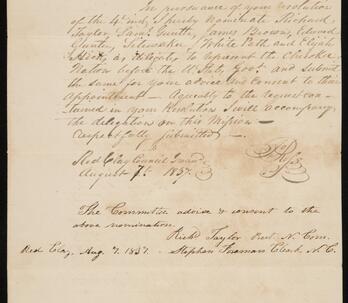 In pursuance of your resolution
of the 4th inst, I hereby nominate Richard
Taylor, Saml. Gunter, James Brown, Edward
Gunter, Sitewakee, White Path and Elijah
Hicks, as Delegates to represent the Cherokee
Nation before the U. States Govt. and submit
the same for your advice and consent to their
appointment — Agreeably to the request con-
tained in your Resolution I will accompany
the delegation on this Mission —
respectfully submitted —
Red Clay Council Ground
August 7th 1837.
The Committee advise & consent to the
above nomination
Richd Taylor Prest N. Com.
Red Clay Aug. 7. 1837. Stephen Foreman Clerk N. C.